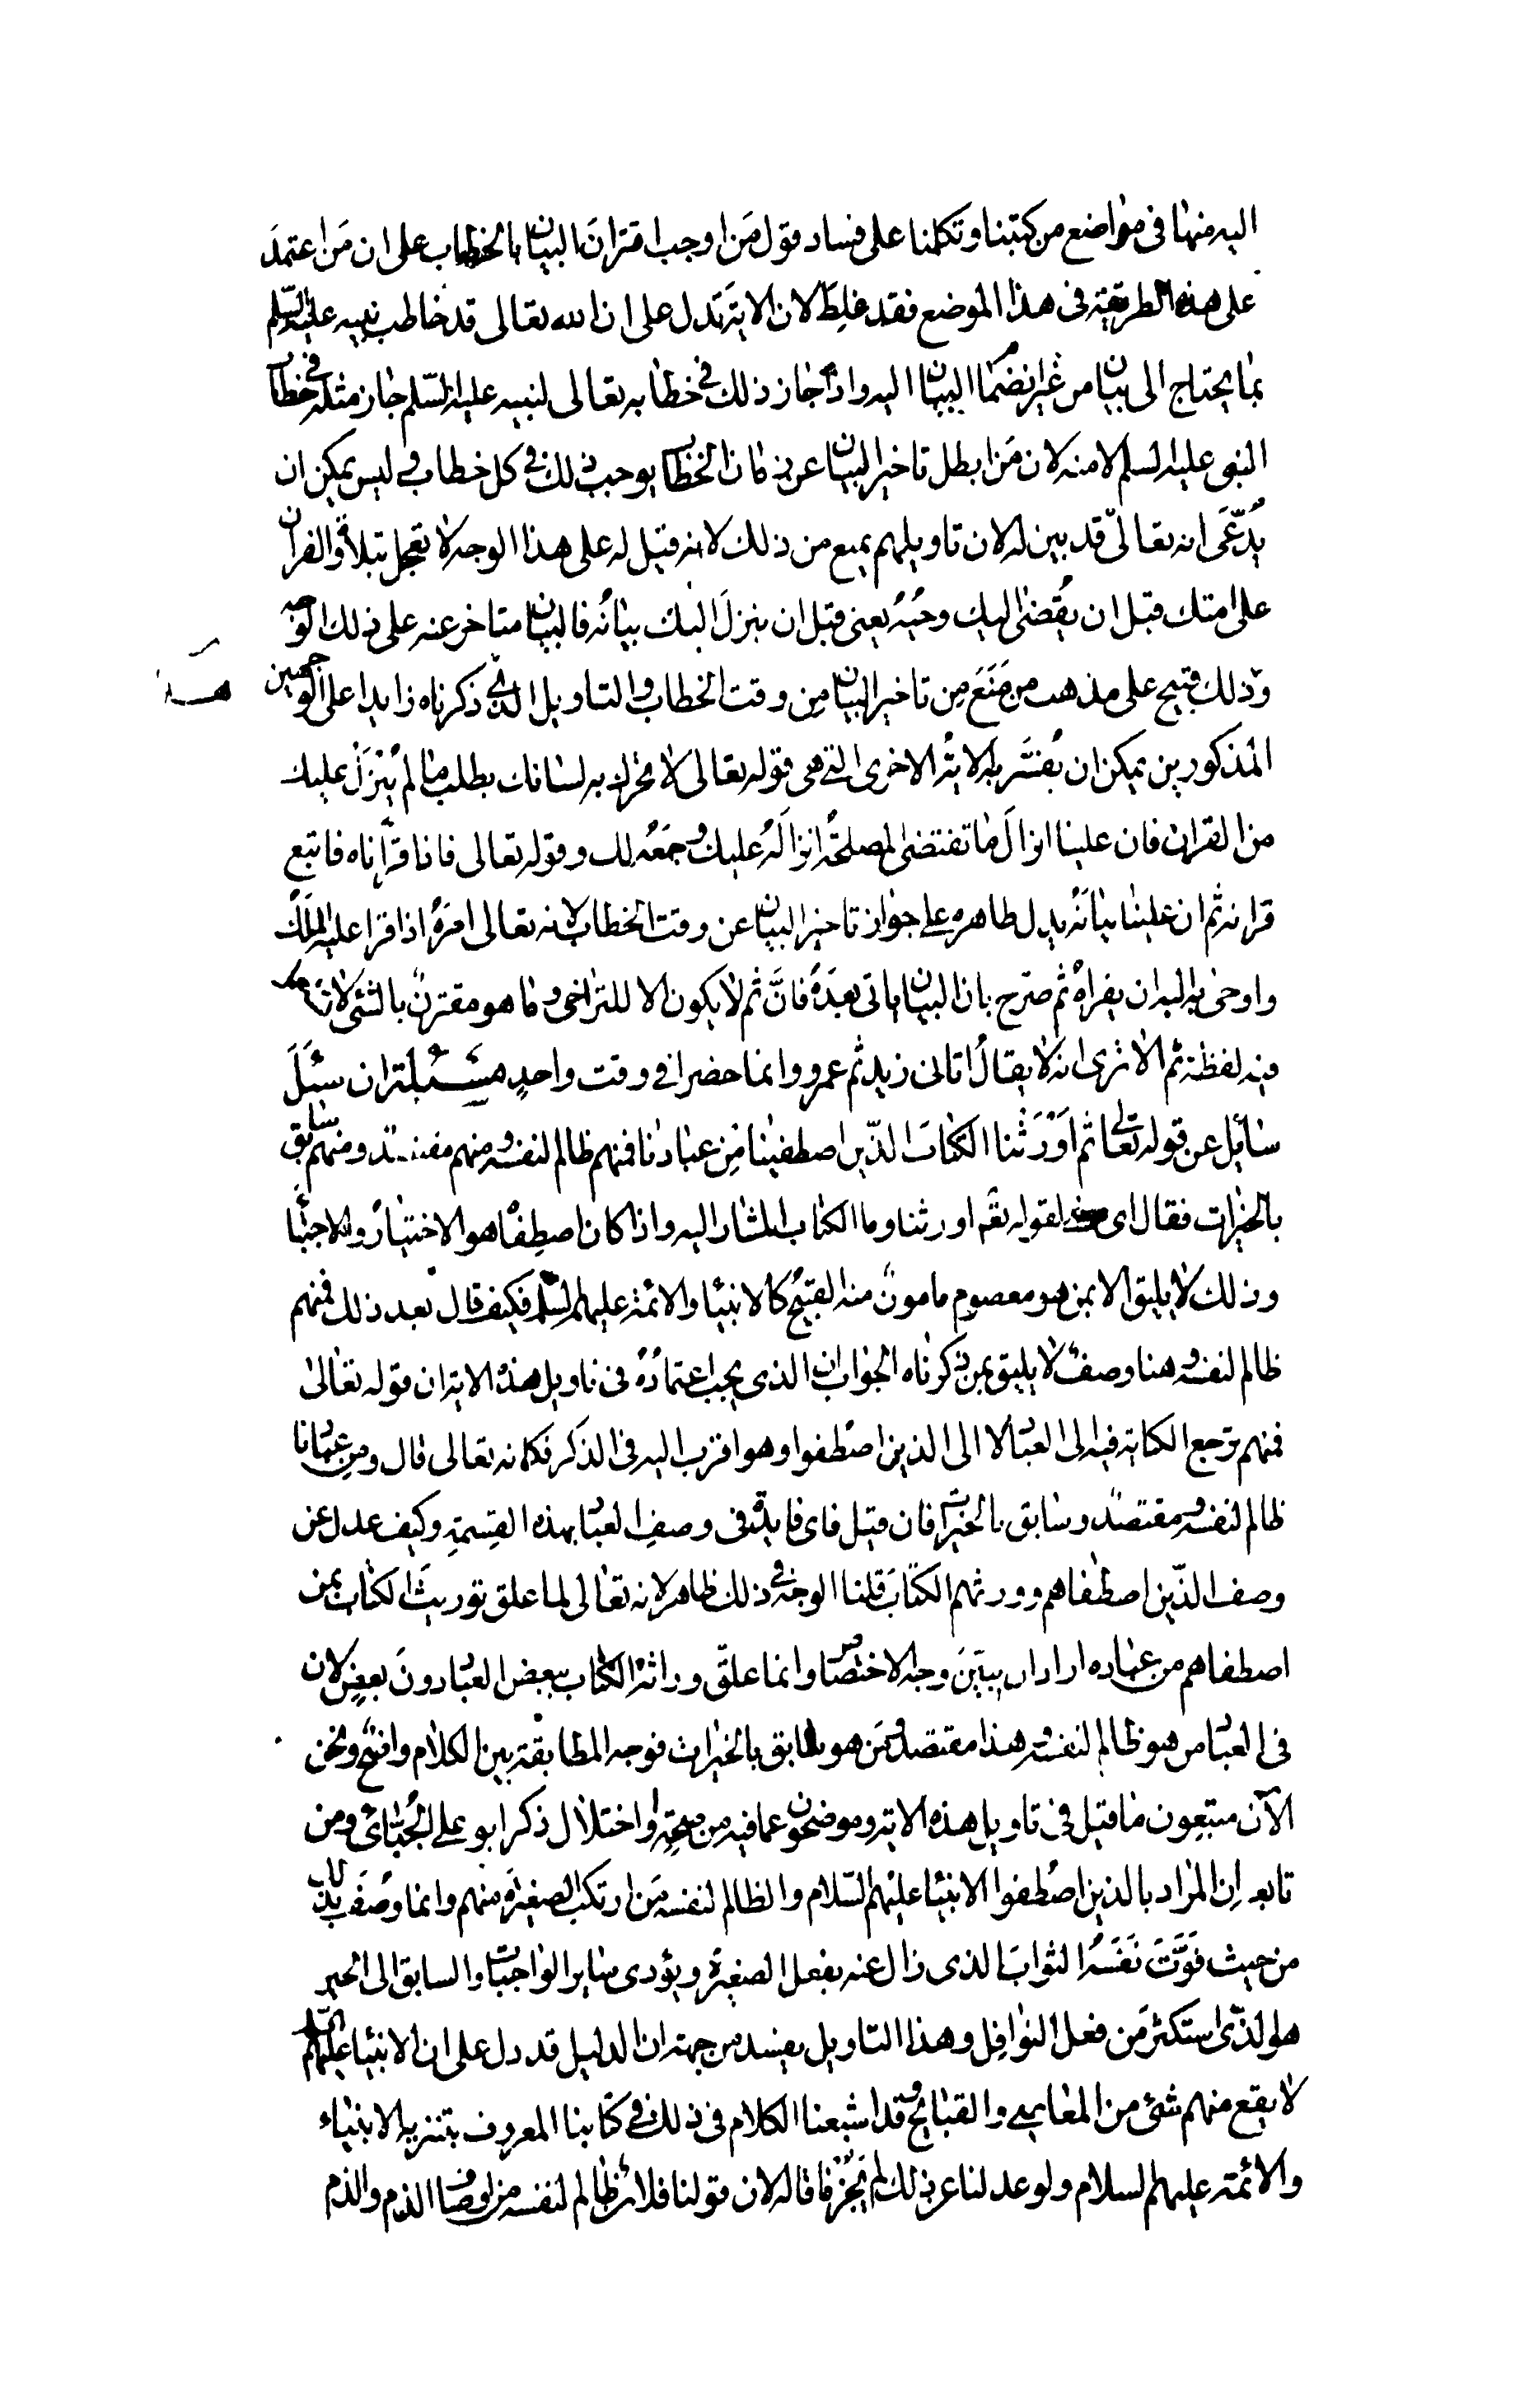 اليه منها في مواضع من كتبنا وتكلمنا على فساد قول مَن اوجب اقتران البيان بالخطاب على ان مَن اعتمدَ
على هذه الطريقة في هذا الموضع فقد غلِطَ لان الاية تَدل على ان الله تعالى قد خاطب نبيه عليه السّلم
بما يحتاج الى بيان من غير انضمام البيان اليه واذا جاز ذلك في خطابه تعالى لنبيه عليه السّلم جاز مثله في خطاب
النبي عليه السلم لامته لان مَن ابطل تاخير البيان عن زمان الخطاب يوجب ذلك في كل خطاب وليس يمكن ان
يُدّعَى انه تعالى قد بين له لان تاويلهم يمنع من ذلك لانه قيل له على هذا الوجه لا تعجل بتلاوة القران
على امتك قبل ان يُقضىٰ اليك وحيُهُ يعني قبل ان ينزل اليك بيانُه فالبيان متاخر عنه على ذلك الوجه
وذلك قبيح على مذهب من مَنَعَ مِن تاخير البيان مِن وقت الخطاب والتاويل الذي ذكرناه زايدا على الوجهين
المذكورين يمكن ان يُفسَّر به الاية الاخرى التي هي قوله تعالى لا تحرك به لسانك بطلب ما لم يُنزَل عليك
من القران فان علينا انزالَ ما تقتضى المصلحةُ انزالَهُ عليك وجمعَهُ لك وقوله تعالى فاذا قرأناه فاتبع
قرانه ثم ان علينا بيانَهُ يدل ظاهره على جواز تاخير البيان عن وقت الخطاب لانه تعالى امرَهُ اذا قرا عليه الملَكُ
واوحى به اليه ان يقراهُ ثم صرّح بان البيان ياتى بعدَهُ فانَّ ثم لا يكون الا للتراخي وما هو مقترنٌ بالشئ لا تستعمل
فيه لفظة ثم الا ترى انه لا يقالُ اتانى زيد ثم عمرو وانما حضرا في وقت واحدٍ مسئلة ان سئلَ
سائل عن قوله تعالى ثم اَوْرَثنا الكتابَ الذّين اصطفينا مِن عبادنا فمنهم ظالم لنفسه ومنهم مقتصد ومنهم سابق
بالخيرات فقال اى معنى لقوله تعٰ اورثنا وما الكتاب المشار اليه واذا كان اصطِفاهو الاختيارُ والاجتبا
وذلك لا يليق الا بمن هو معصوم مامونٌ منه القبيحُ كالانبيا والائمة عليهم السلم فكيف قال بعد ذلك فمنهم
ظالم لنفسه وهنا وصفٌ لا يليق بمن ذكرناه الجواب ان الذى يجب اعتمادُهُ في تاويل هذه الاية ان قوله تعالى
فمنهم ترجع الكناية فيه الى العباد لا الى الذين اصْطُفوا وهو اقرب اليه في الذكر فكانه تعالى قال ومن عبادنا
ظالم لنفسه ومقتصدٌ وسابق بالخيرات فان قيل فاى فايدة في وصفِ العباد بهذه القِسمةِ وكيف عدل عن
وصف الذّين اصطفاهم وورثهم الكتابَ قلنا الوجهُ في ذلك ظاهر لانه تعالى لما علق توريثَ الكتاب بمن
اصطفاهم من عباده اراد ان يبيّنَ وجه الاختصاص وانما علّق وراثة الكتاب ببعض العباد دونَ بعضٍ لان
في العباد من هو ظالم لنفسه وهذا مقتصد ومَن هو سابق بالخيرات فوجه المطابقة بين الكلام واضح ونحن
الآن متبعون ما قيل في تاويل هذه الاية وموضحون عما فيه من صحةٍ واختلال ذكر ابو على الجُبّائى ومن
تابعه اِن المراد بالذين اصْطُفوا الانبيا عليهم السّلام والظالم لنفسه مَن ارتكب الصغيرة منهم وانما وُصفَ بذلك
من حيث فَوَّتَ نَفسَهُ الثوابَ الذى زال عنه بفعل الصغيرة ويؤدى ساير الواجبات والسابق الى الخير
هو الذّى استكثر مَن فعل النوافِل وهذا التاويل يفسد من جهة ان الدليل قد دل على ان الانبيا عليهم السلم
لا يقع منهم شئ من المعاصى والقبايح وقد اشبعنا الكلام في ذلك في كتابنا المعروف بتنزيه الانبياء
والائمة عليهم السلام ولو عدلنا عن ذلك لم يَجُز ما قاله لان قولنا فلان ظالم لنفسه من اوصاف الذم والذم